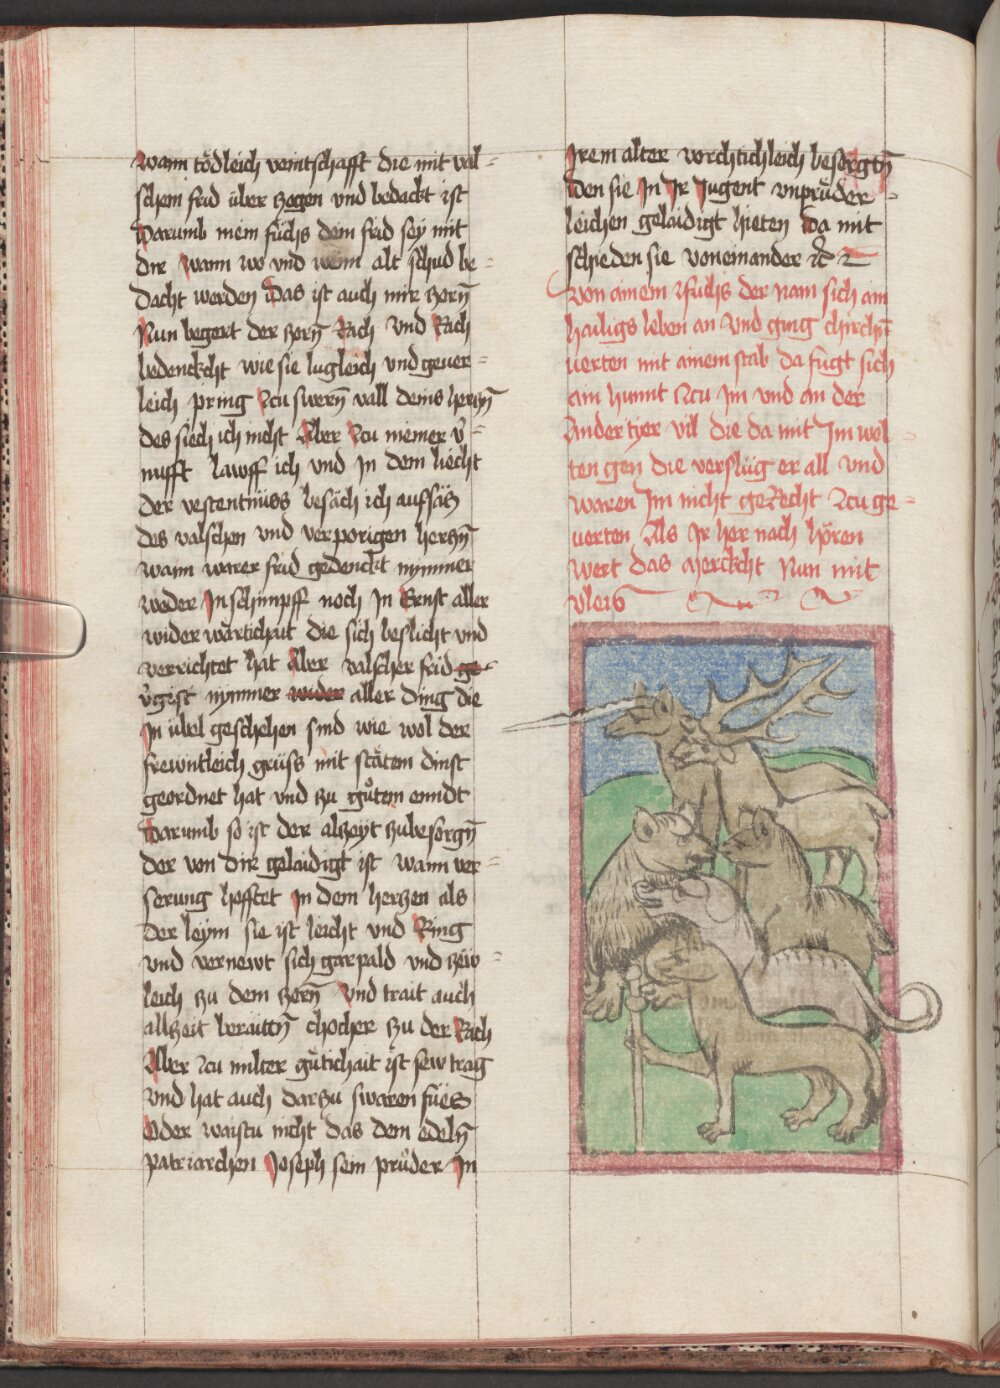 wann tödleich veintschafft die mit val=
schem frid über zogen vnd bedackt ist
Darumb mein fuchs dein frid sey mit
dir wann wo vnd wenn alt schuld be=
dacht werden Das ist auch mir zorn̄
Nun begert der zorn̄ Rach vnd Rach
bedenckcht wie sie lugleich vnd gever=
leich pring Zcu swern̄ vall deins hercz̄n
des siech ich nicht Aber Zcu niemer v̈=
nufft lawff ich vnd in dem liecht
der vestentnüss besäch ich auffsäcz
des valschen vnd verporigen hercz̄n
wann warer frid gedenckt nymmer
weder In schimpff noch In Ernst aller
wider wärtichait die sich beslicht vnd
verrichtet hat Aber valscher frid
v̈gist nymmer aller ding die
In übel geschehen sind wie wol der
frewntleich grüss mit stätem dinst
geordnet hat vnd zu gůtem enndt
Darumb so ist der alzeyt zubesorgn̄
der von dir gelaidigt ist wann ver=
serung hefftet In dem herzen als
der leym sie ist leicht vnd Ring
vnd vernewt sich gar pald vnd zeiv=
leich zu dem zorn̄ vnd trait auch
allzeit beraittn̄ chocher zu der Rach
Aber zcu milter gütichait ist sew trag
vnd hat auch darzu swaren fües
Oder waistu nicht das dem edeln̄
patriarchen Joseph sein prüder In
Irem alter vorchtichleich besorgtn̄
den sie In Ir Jugent vnprüder=
leichen gelaidigt hieten Da mit
schieden sie voneinander ꝛc̄
Von ainem fuchs der nam sich ain
hailigs leben an vnd ging chirchn̄
verten mit ainem stab da fugt sich
ain hunnt Zcu Im vnd an der
Ander tyer vil die da mit Im wol
ten gen die verslüg er all vnd
waren Im nicht geRecht Zcu ge=
uerten Als Ir her nach hören
wert das Merckcht Nun mit
vleis